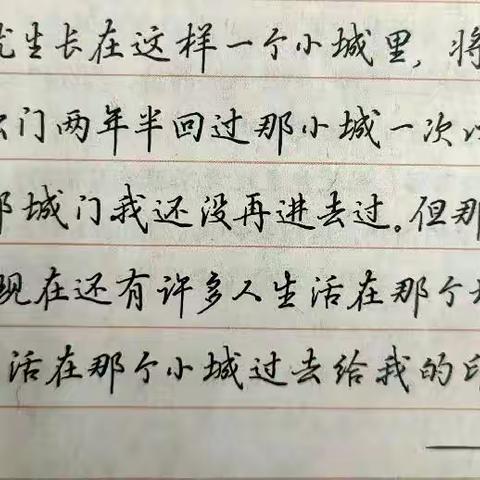 我生长在这样一个小城里，将
出门两年半回过那小城一次以
那城门我还没再进去过。但那
现在还有许多人生活在那个城
活在那个小城过去给我的印